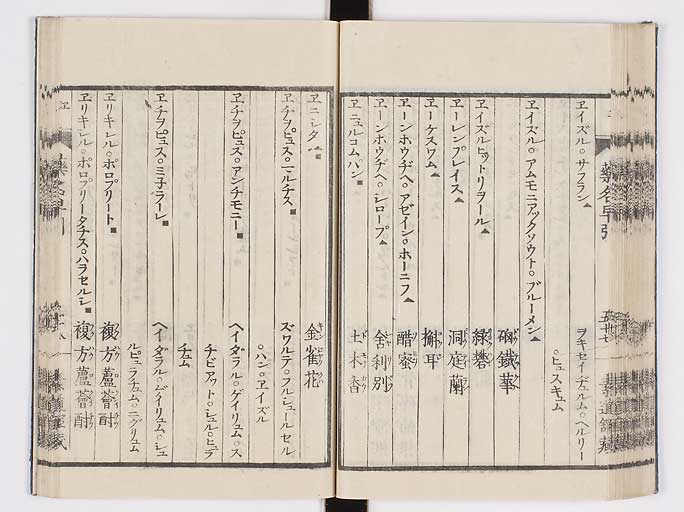 ヱイズル。サフラン▲
ヲキセイデュルム。ヘルリー
。ピュスキュム
ヱイズル。アムモニアックソウト。ブルーメン▲
硇鐵華
ヱイズルヒットリヲール▲
緑礬
ヱーレンプレイス▲
洞庭蘭
ヱーケスワム▲
槲耳
ヱーンホウヂヘ。アゼイン。ホーニフ▲
醋蜜
ヱーンホウヂヘ。シロープ▲
舎利別
ヱニュルコムパン■
土木香
ヱニシタ
金雀花
ヱチヲピュス。ミルチス■
ズワルテ。フルシュールセル
。ハン。ヱイズル
ヱチヲピュス。アンチモニー■
ヘイダラル。ゲイリュム。ス
チビアット。シュル。ヒュテ
チュム
ヱチヲピュス。ミ子ラーレ■
ヘイダラル。ゲイリュム。シュ
ルピュラチュム。ニグリュム
ヱリキシル。ポロプリート■
複方蘆薈酎
ヱリキシル。ポロプリータチス。パラセルシ■
複方蘆薈酎